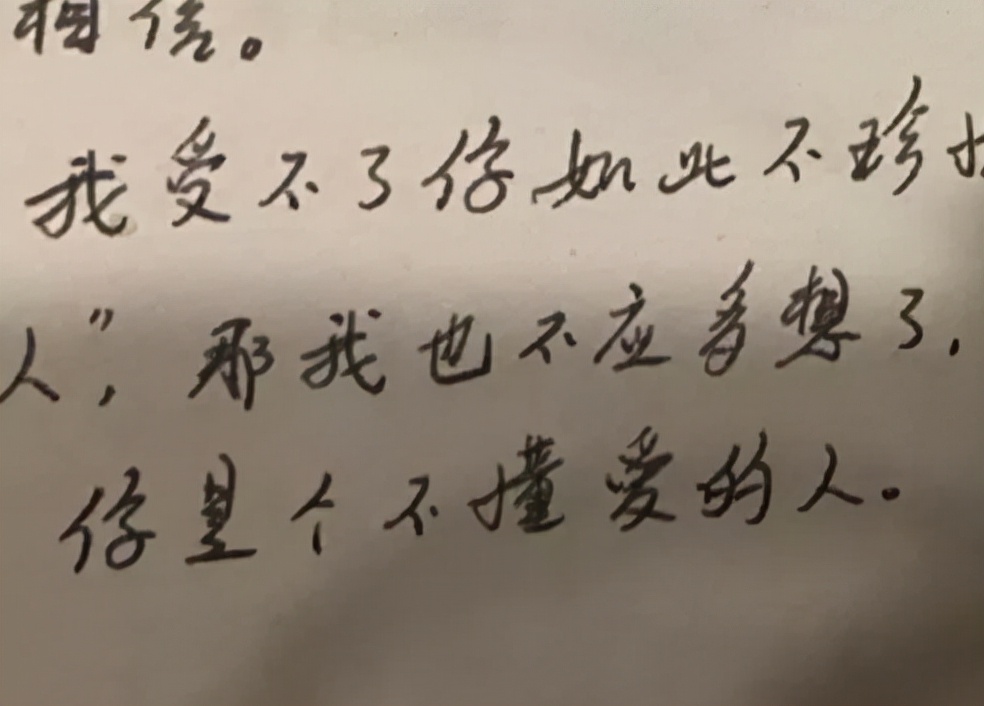 相信。
我受不了你如此不珍
人”，那我也不应多想了，
你是个不懂爱的人。